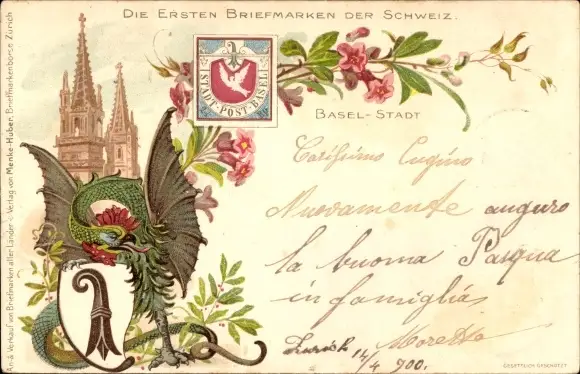 DIE ERSTEN BRIEFMARKEN DER SCHWEIZ.
STADT-POST-BASEL
BASEL-STADT
Carissimo Cugino
Nuovamente auguro
la buona Pasqua
in famiglia
Zurich 14/4 900.
An- & Verkauf von Briefmarken aller Länder - Verlag von Menke-Huber, Briefmarkenbörse Zürich
GESETZLICH GESCHÜTZT